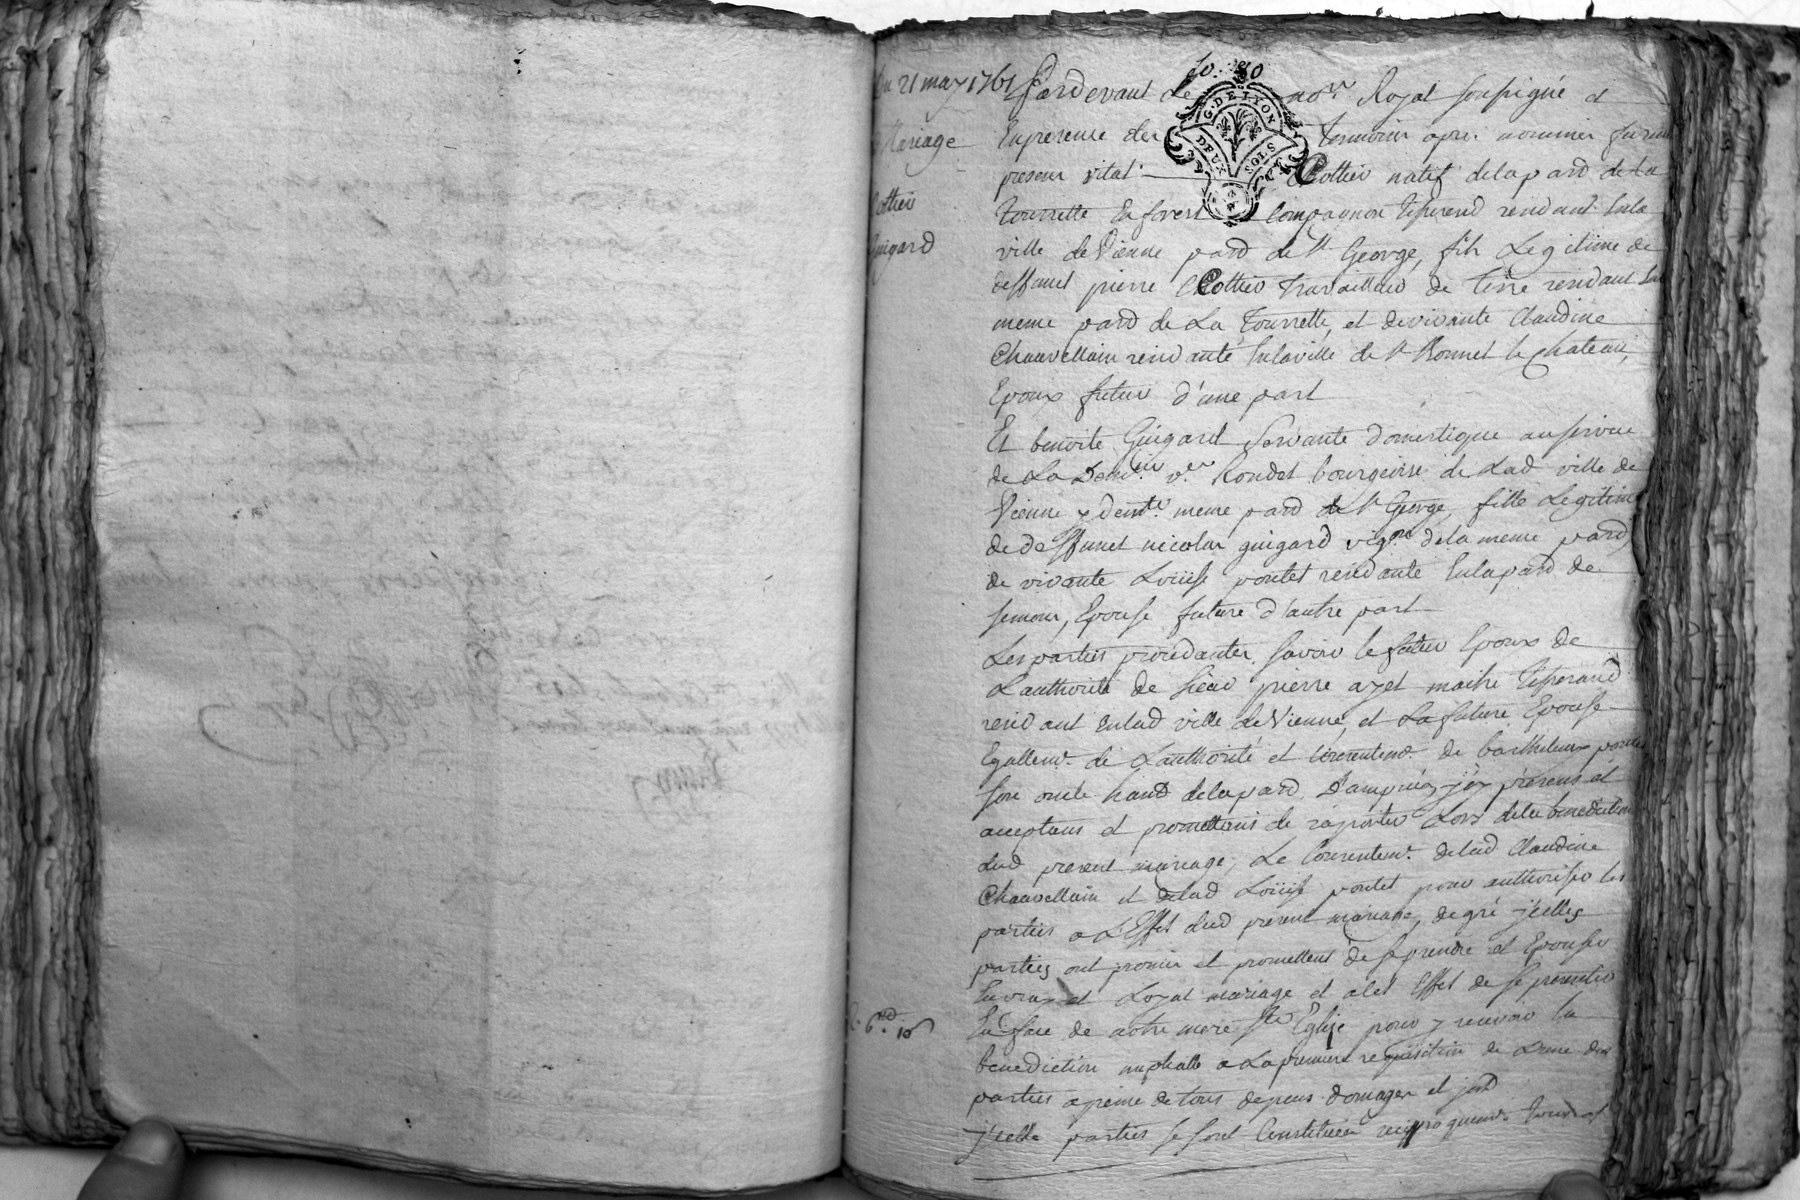 Du 21 may 1761
Mariage
Cottier
Guigard
R. 6
G. DE LYON
DEUX SOLS
Pardevant Le no.re Royal soussigné et
En presence des temoins apres nommés furent
presens vital Cottier natif delapard de La
Tourrette En forest Compagnon tisserend residant En la
ville de Vienne pard de St George, fils Legitime de
deffunct pierre Cottier travailleur de terre residant En la
meme pard de La Tourrette, et de vivante Claudine
Chauvellain residante En la ville de St Bonnet le chateau,
Epoux futur d'une part
Et benoite Guigard servante domestique au service
de La Dem.lle v.e Rondet bourgeoise de Lad ville de
Vienne y dem.te meme pard de St George, fille Legitime
de deffunct nicolas guigard vig.on de la meme pard,
de vivante Loüise pontet residante En la pard de
semons, Epouse future d'autre part
Les parties procédantes, savoir le futur Epoux de
L'authorité de sieur pierre ayet maitre tisserand
resid ant En lad ville de Vienne, et La future Epouse
Egallem.t de L'authorité et Consentem.t de barthelemy pontet
son oncle hand de la pard D'ampuis, icy présens et
acceptans et promettans de raporter Lors de la benediction
dud present mariage, Le Consentem.t de lad Claudine
Chauvellain et de lad Loüise pontet pour authoriser les
parties a L'Effet dud present mariage, de gré jcelles
parties ont promis et promettent de se prendre et Epouser
En vray et Loyal mariage et a Cet Effet de se presenter
En face de notre mere Ste Eglise pour y recevoir la
benediction nuptialle a La premiere requisition de L'une des
parties a peine de tous depens domages et
jcelles parties se sont Constituées reciproquem.t tous et